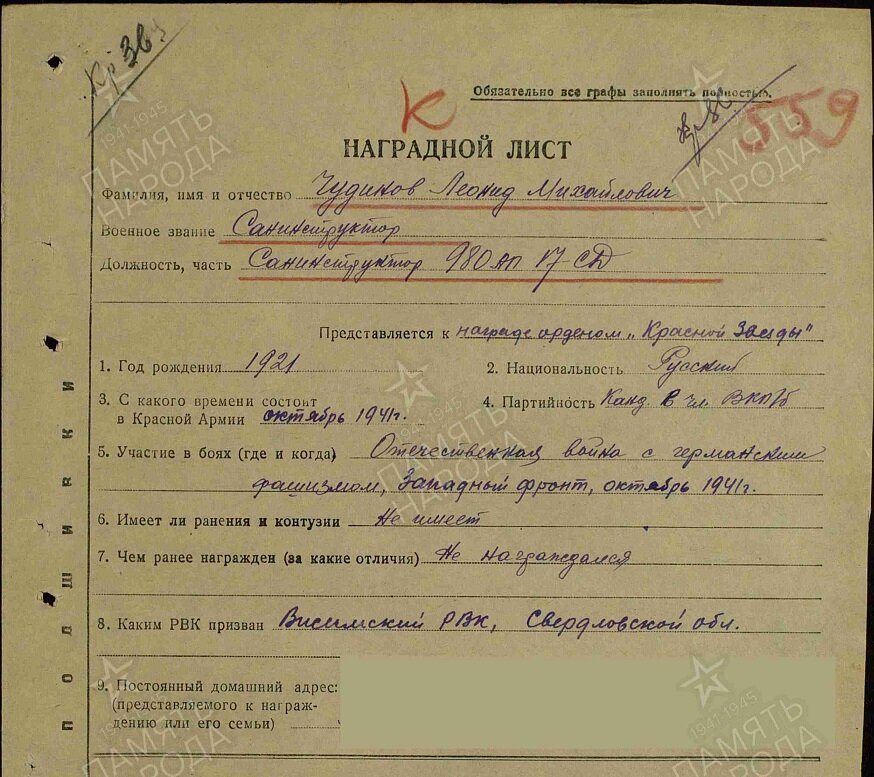 Кр 36
К
Обязательно все графы заполнять полностью.
559
НАГРАДНОЙ ЛИСТ
Фамилия, имя и отчество Чудинов Леонид Михайлович
Военное звание Санинструктор
Должность, часть Санинструктор 980 АП 17-СД
Представляется к награде орденом „Красной Звезды"
1. Год рождения 1921
2. Национальность Русский
3. С какого времени состоит
в Красной Армии октябрь 1941г.
4. Партийность Канд. в чл. ВКП/б
5. Участие в боях (где и когда) Отечественная война с германским
фашизмом, Западный фронт, октябрь 1941г.
6. Имеет ли ранения и контузии Не имеет
7. Чем ранее награжден (за какие отличия) Не награждался
8. Каким РВК призван Висимский РВК, Свердловской обл.
9. Постоянный домашний адрес:
(представляемого к награж-
дению или его семьи)
подшивки
1941-1945
ПАМЯТЬ
НАРОДА